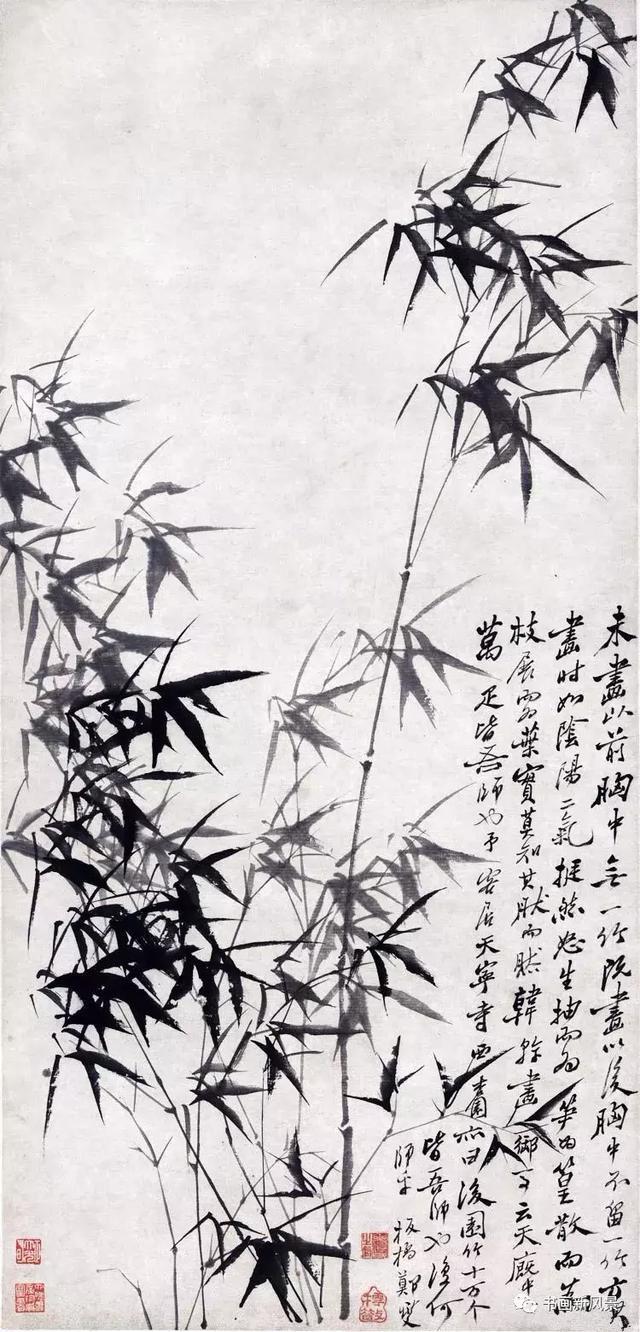 未畫以前胸中無一竹既畫以後胸中不留一竹方其
畫时如陰陽二氣挺然怒生抽而為笋為篁散而為
枝展而為葉實莫知其然而然韓幹畫御馬云天廐中
萬疋皆吾師也予客居天寧寺西杏園亦曰後園竹十万个
皆吾師也復何
師乎板橋鄭燮
书画新风景